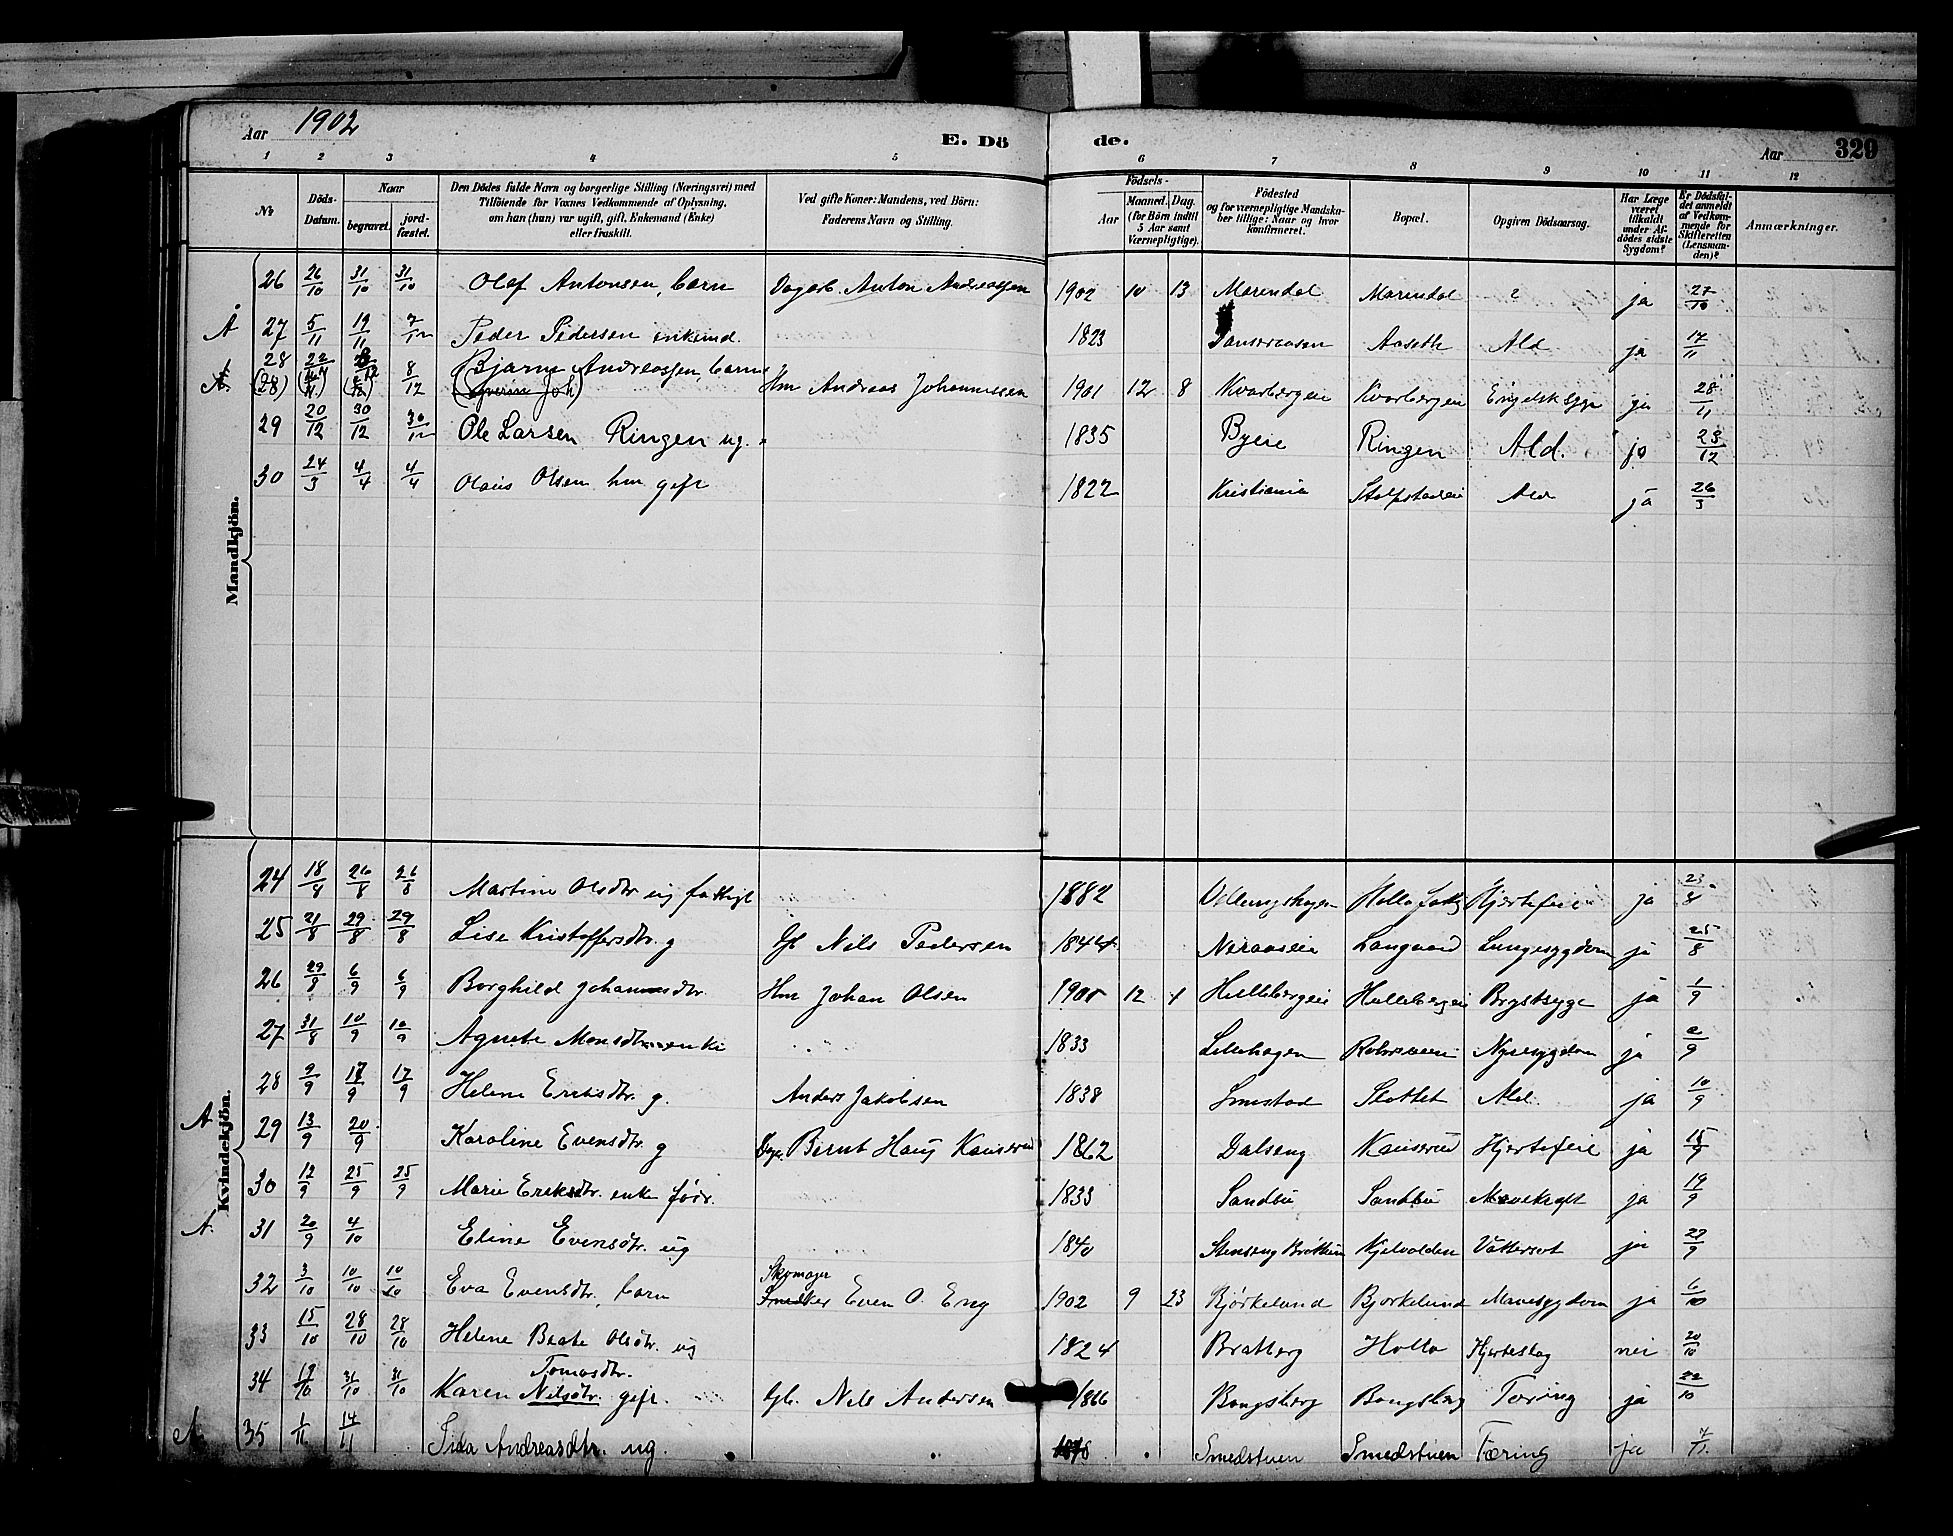 Aar 1902 E. Dö de. Aar 329
1 2 3 4 5 6 7 8 9 10 11 12
№ Döds-Datum. Naar begravet. jord-fæstet. Den Dödes fulde Navn og borgerlige Stilling (Næringsvei) med Tilföiende for Voxnes Vedkommende af Oplysning, om han (hun) var ugift, gift, Enkemand (Enke) eller fraskilt. Ved gifte Koner: Mandens, ved Börn: Faderens Navn og Stilling. Födsels- Aar Maaned. Dag. (for Börn indtil 5 Aar samt Værnepligtige). Födested og for værnepligtige Mandskaber tillige: Naar og hvor konfirmeret. Bopæl. Opgiven Dödsaarsag. Har Læge været tilkaldt under Afdödes sidste Sygdom? Er Dödsfaldet anmeldt af Vedkommende for Skifteretten (Lensmanden)? Anmærkninger.
Mandkjön.
26 26/10 31/10 31/10 Olaf Antonsen, barn Dagarb. Anton Andreassen 1902 10 13 Marendal Marendal ? ja 27/10
A 27 5/11 19/11 Peder Pedersen enkemd. 1823 Aaseth Ald ja 17/11
28 22/11 Bjarne Andreassen, barn
A. (28) 8/12 Hm Andreas Johannesen 1901 12 8 Kvarbergeie Kvarbergeie Engelsk syge ja 28/11
29 20/12 30/12 30/12 Ole Larsen Ringen ug. 1835 Byeie Ringen Ald. ja 23/12
30 24/3 4/4 4/4 Olaus Olsen hm gift 1822 Kristiania ja 26/3
Kvindekjön.
24 18/8 26/8 26/8 Martine Olsdtr. ug fattigl 1882 Hjertefeil ja 23/8
25 21/8 29/8 29/8 Lise Kristoffersdtr. g Nils Pedersen 1844 Langaard Lungesygdom ja 25/8
26 29/8 6/9 6/9 Borghild Johannsdtr. Hm Johan Olsen 12 Hullebergeie Hullebergeie Brystsyge ja 1/9
27 31/8 10/9 10/9 Agnete Monsdtr. enke 1833 Lillehagen Nyresygdom ja 2/9
28 9/9 17/9 17/9 Helene Eriksdtr. g. Anders Jakobsen 1838 Smestad Slottet Ald. ja 10/9
A 29 13/9 20/9 Karoline Evensdtr. g Bernt Haug Kauserud 1862 Dalseng Kauserud Hjertefeil ja 15/9
30 12/9 25/9 25/9 Marie Eriksdtr. enke 1833 Sandbu Sandbu Mavekræft ja 19/9
A. 31 20/9 4/10 Eline Evensdtr. ug 1840 Stenseng Brøttum Vattersot ja 22/9
32 3/10 10/10 10/10 Eva Evensdtr., barn Skomager Even O. Eng 1902 9 23 Bjørkelund Bjørkelund Mavesygdom ja 6/10
33 15/10 28/10 28/10 Helene Beate Olsdtr. ug 1824 Bratberg Holte Hjerteslag nei 20/10
Tomasdtr.
34 17/10 31/10 31/10 Karen Nilsdtr. gift. Nils Andersen 1866 Bongsberg Bongsberg Tæring ja 22/10
A 35 1/11 14/11 Andreasdtr. ug. Smedstuen Smedstuen Tæring ja 4/11